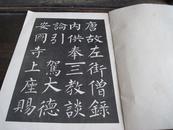 唐故左街僧錄
内供奉三教談
論引駕大德
安國寺上座賜